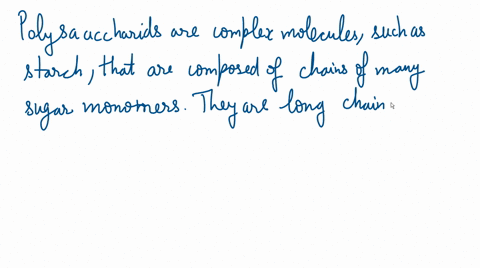 Polysaccharids are complex molecules, such as
starch, that are composed of chains of many
sugar monomers. They are long chain